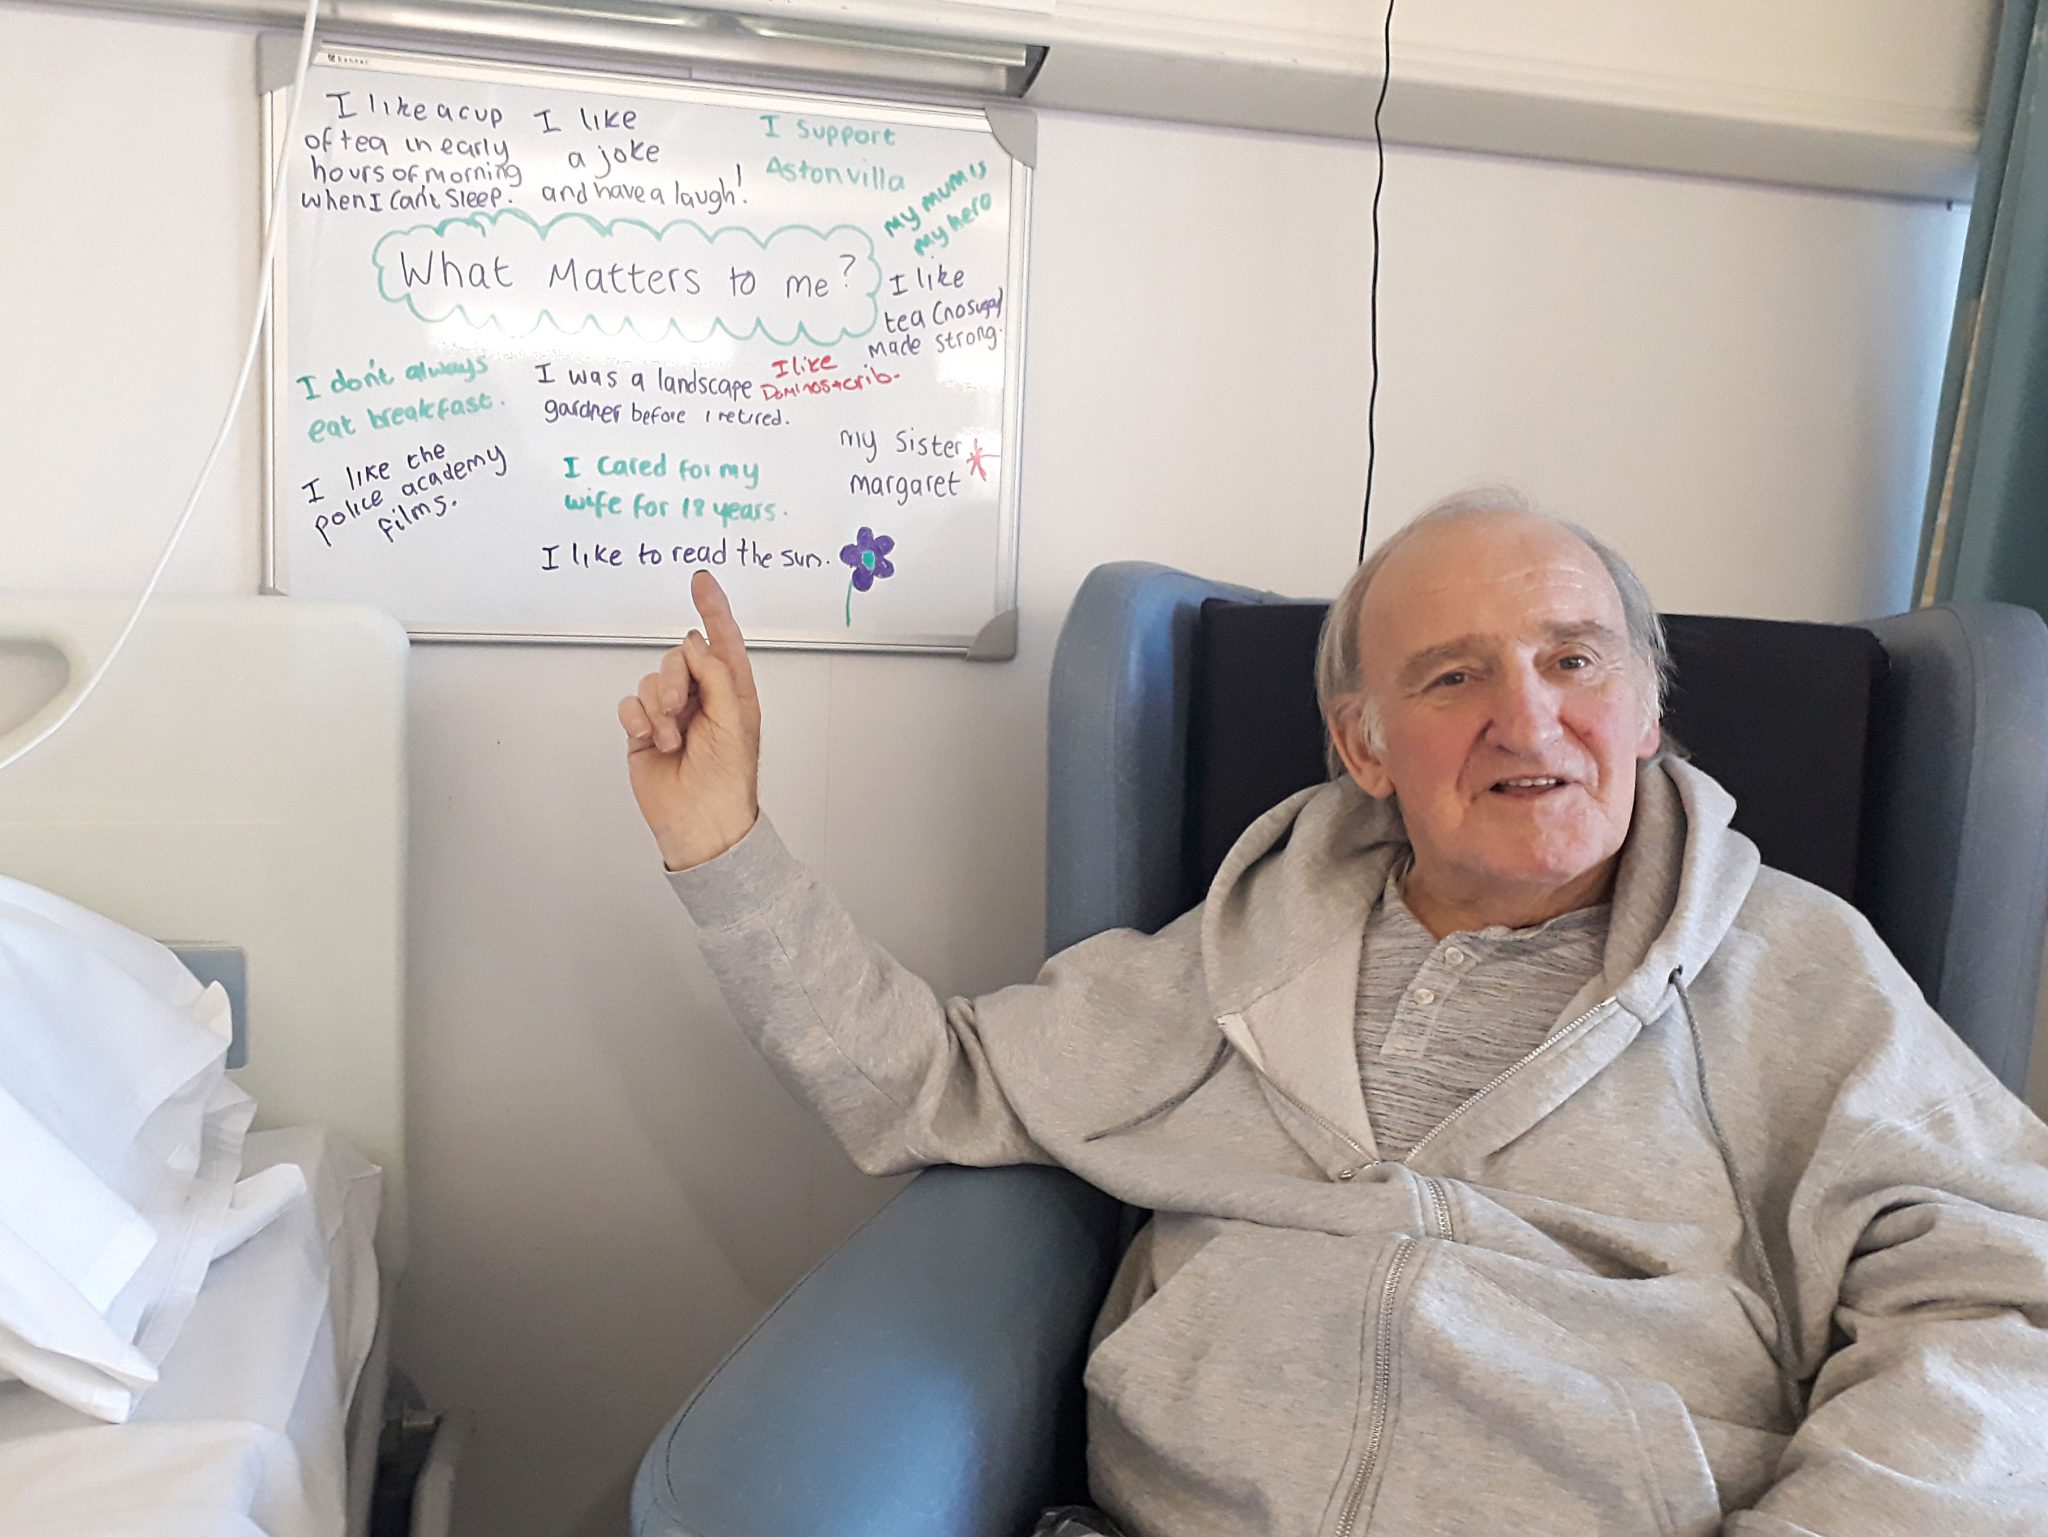 banner
I like a cup
of tea in early
hours of morning
when I can't sleep.
I like
a joke
and have a laugh!
I support
Aston villa
my mum is
my hero
What Matters to me?
I like
tea (no sugar)
made strong.
I don't always
eat breakfast.
I was a landscape
gardner before i retired.
I like
Dominos + crib.
I like the
police academy
films.
I cared for my
wife for 18 years.
my sister
margaret
I like to read the sun.